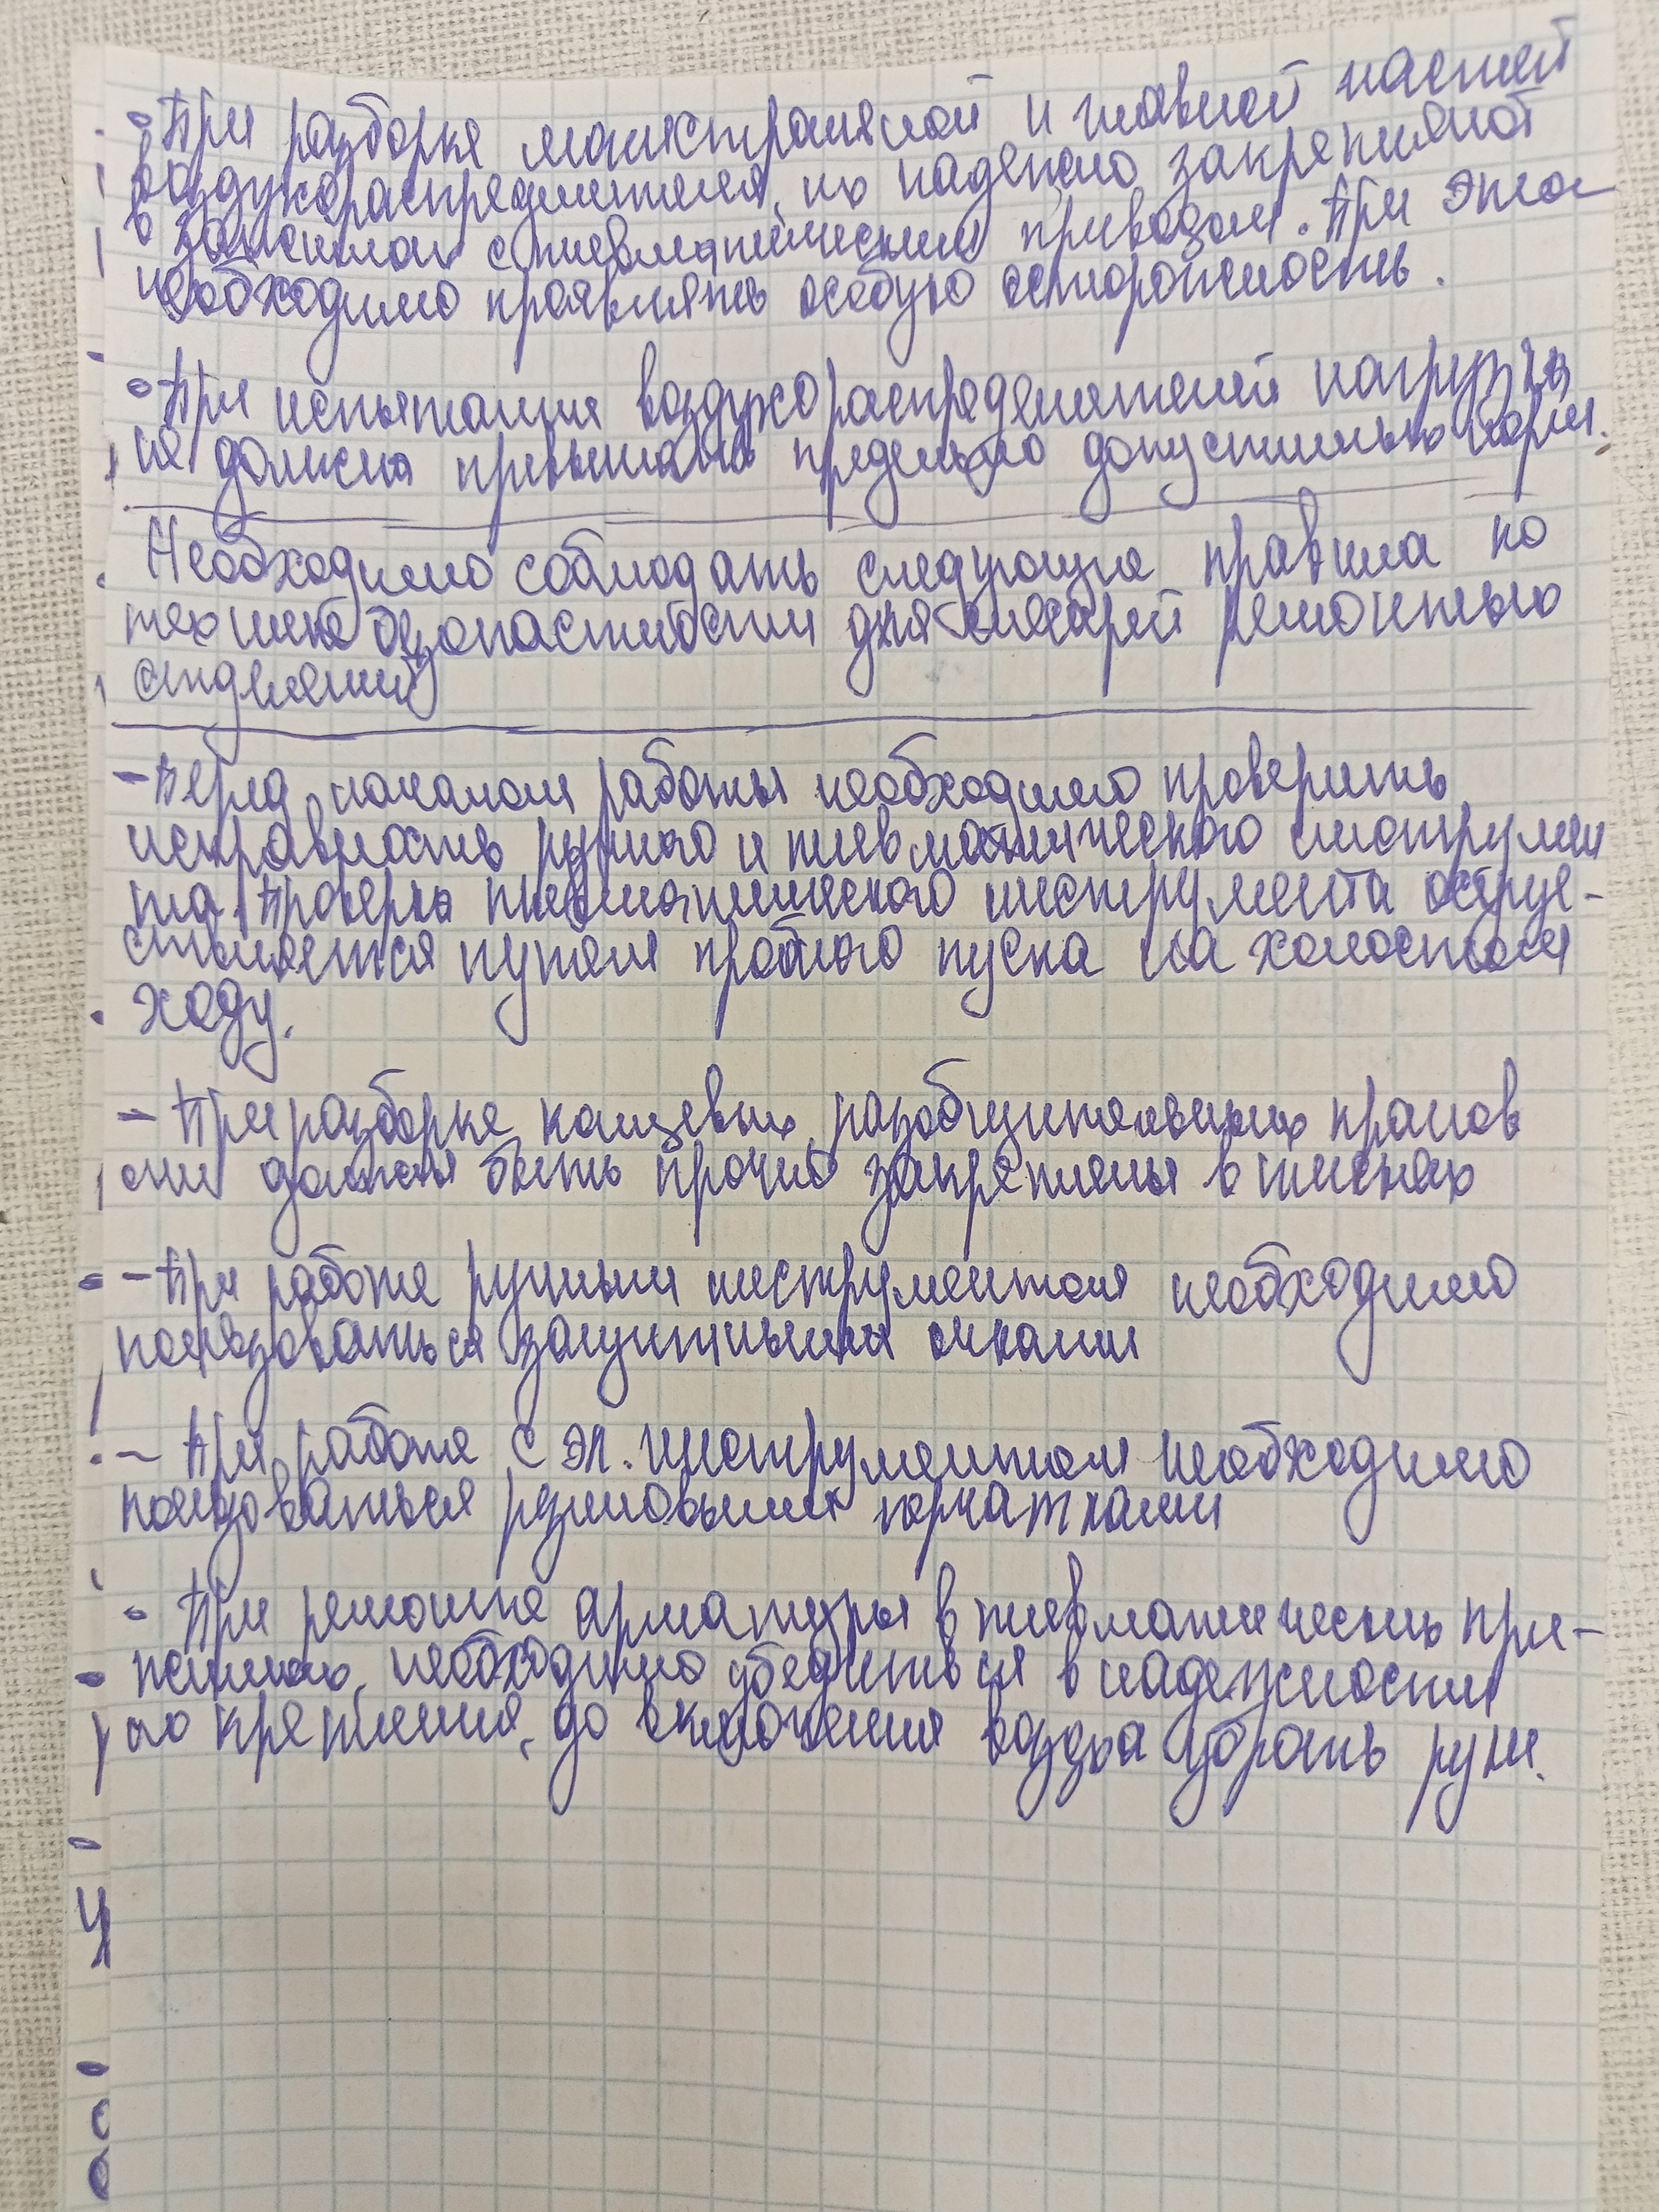 • При разборке магистральной и главной частей
воздухораспределителя, их надежно закрепляют
в зажимах с пневматическим приводом. При этом
необходимо проявлять особую осторожность.
• При испытании воздухораспределителей нагрузка
не должна превышать предельно допустимых норм.
Необходимо соблюдать следующие правила по
технике безопастности для слесарей ремонтных
отделений
- Перед началом работы необходимо проверить
исправность ручного и пневматического инструмен
та. Проверка пневматического инструмента осуще-
ствляется путём пробного пуска на холостом
ходу.
- При разборке концевых, разобщительных кранов
они должны быть прочно закреплены в тисках
- При работе ручным инструментом необходимо
пользоваться защитными очками
- При работе с эл. инструментом необходимо
пользоваться резиновыми перчатками
- При ремонте арматуры в пневматических при-
жимах, необходимо убедиться в надежности
его крепления, до включения воздуха убрать руки.